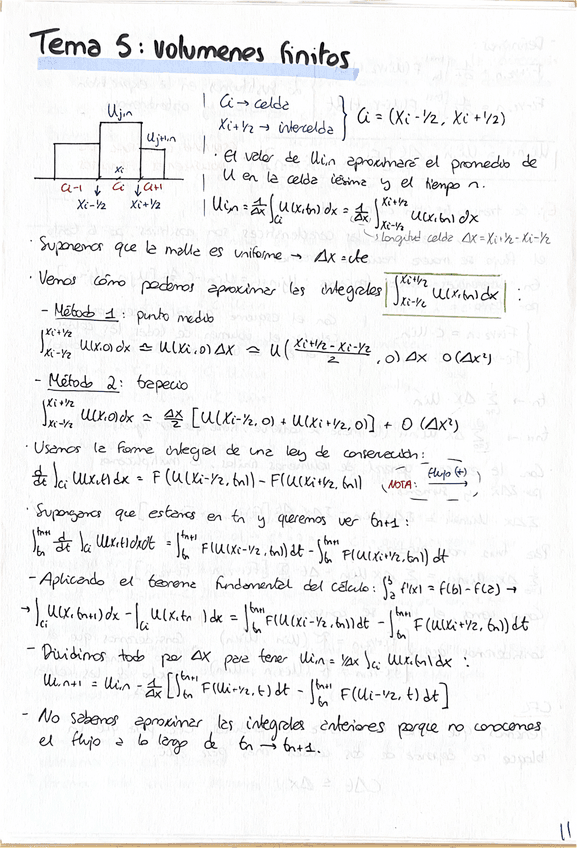 Tema 5: volumenes finitos
Uj,n
Uj+1,n
xi
Ci-1 Ci Ci+1
Xi-1/2 Xi+1/2
Ci → celda
Xi+1/2 → intercelda
Ci = (Xi-1/2, Xi+1/2)
· El valor de Ui,n aproximará el promedio de
U en la celda iésima y el tiempo n.
Ui,n = 1/Δx ∫Ci U(x,tn) dx = 1/Δx ∫Xi-1/2^Xi+1/2 U(x,tn) dx
→ Longitud celda Δx = Xi+1/2 - Xi-1/2
· Suponemos que la malla es uniforme → Δx = cte
· Vemos cómo podemos aproximar las integrales ∫Xi-1/2^Xi+1/2 U(x,tn) dx :
- Método 1: punto medio
∫Xi-1/2^Xi+1/2 U(x,0) dx ≃ U(Xi,0) Δx ≃ U((Xi+1/2 - Xi-1/2)/2 , 0) Δx O(Δx²)
- Método 2: trapecio
∫Xi-1/2^Xi+1/2 U(x,0) dx ≃ Δx/2 [U(Xi-1/2, 0) + U(Xi+1/2, 0)] + O(Δx²)
· Usamos la forma integral de una ley de conservación:
d/dt ∫Ci U(x,t) dx = F(U(Xi-1/2, tn)) - F(U(Xi+1/2, tn)) (NOTA: flujo (+) →)
· Supongamos que estamos en tn y queremos ver tn+1:
∫tn^tn+1 d/dt ∫Ci U(x,t) dx dt = ∫tn^tn+1 F(U(Xi-1/2, tn)) dt - ∫tn^tn+1 F(U(Xi+1/2, tn)) dt
- Aplicando el teorema fundamental del cálculo: ∫a^b f'(x) = f(b) - f(a) →
→ ∫Ci U(x,tn+1) dx - ∫Ci U(x,tn) dx = ∫tn^tn+1 F(U(Xi-1/2, tn)) dt - ∫tn^tn+1 F(U(Xi+1/2, t)) dt
- Dividimos todo por Δx para tener Ui,n = 1/Δx ∫Ci U(x,tn) dx :
Ui,n+1 = Ui,n - 1/Δx [∫tn^tn+1 F(Ui-1/2, t) dt - ∫tn^tn+1 F(Ui-1/2, t) dt]
- No sabemos aproximar las integrales anteriores porque no conocemos
el flujo a lo largo de tn → tn+1.
11